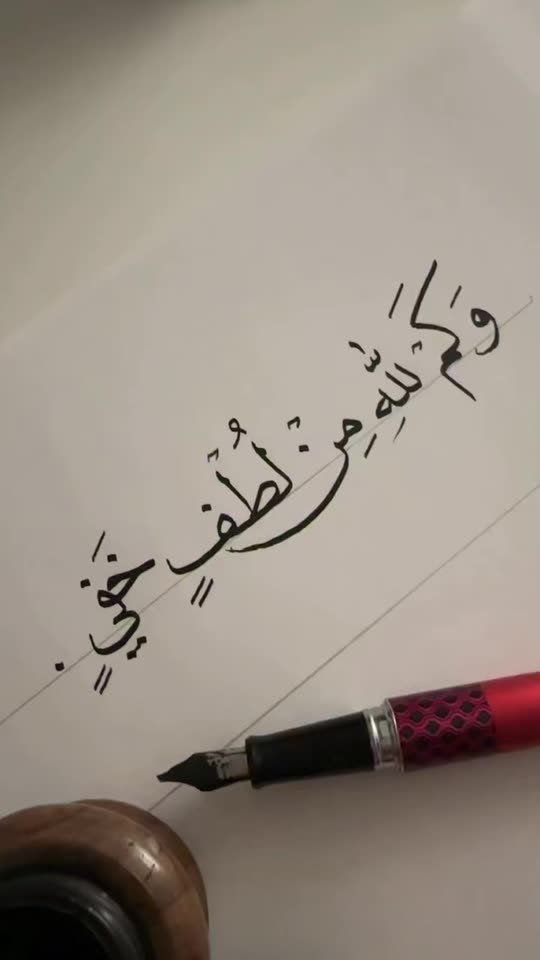 وَكَمْ لِلَّهِ مِنْ لُطْفٍ خَفِيٍ.